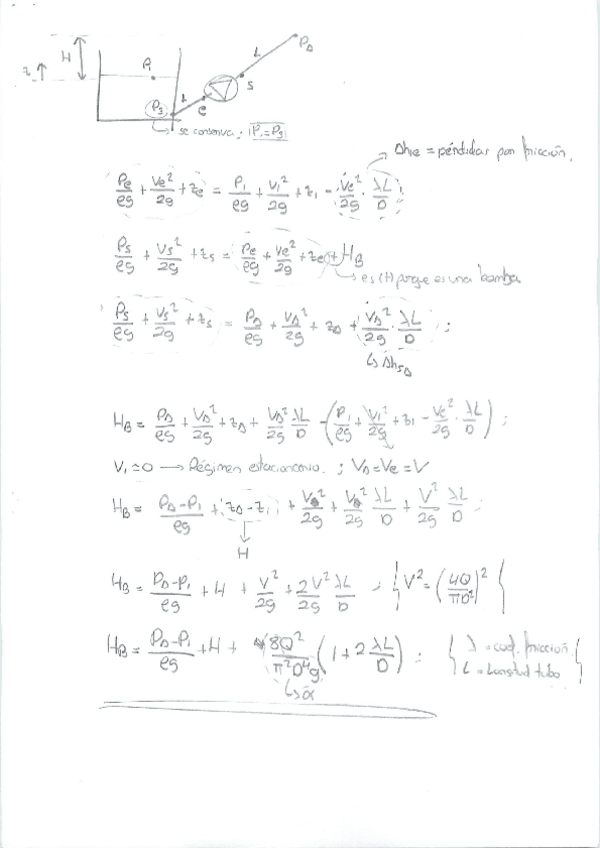 H
z
P₁
L
P_D
L
S
e
P₃
se conserva: |P₁=P₃|
Δh₁e = pérdidas por fricción.
Pe/ρg + Ve²/2g + ze = P₁/ρg + V₁²/2g + z₁ - Ve²/2g · λL/D
Ps/ρg + Vs²/2g + zs = Pe/ρg + Ve²/2g + ze + H_B
es (+) porque es una bomba
Ps/ρg + Vs²/2g + zs = P_D/ρg + V_D²/2g + z_D + V_D²/2g · λL/D ;
↳ Δh_SD
H_B = P_D/ρg + V_D²/2g + z_D + V_D²/2g λL/D - (P₁/ρg + V₁²/2g + z₁ - Ve²/2g · λL/D) ;
V₁ ≃ 0 → Régimen estacionario. ; V_D = Ve = V
H_B = P_D-P₁/ρg + (z_D - z₁) + V_D²/2g + V_D²/2g λL/D + V²/2g λL/D ;
H
H_B = P_D-P₁/ρg + H + V²/2g + 2V²/2g λL/D ; { V² = (4Q/πD²)² }
H_B = P_D-P₁/ρg + H + 8Q²/π²D⁴g (1 + 2 λL/D) ; { λ = coef. fricción.
L = Longitud tubo }
↳ α